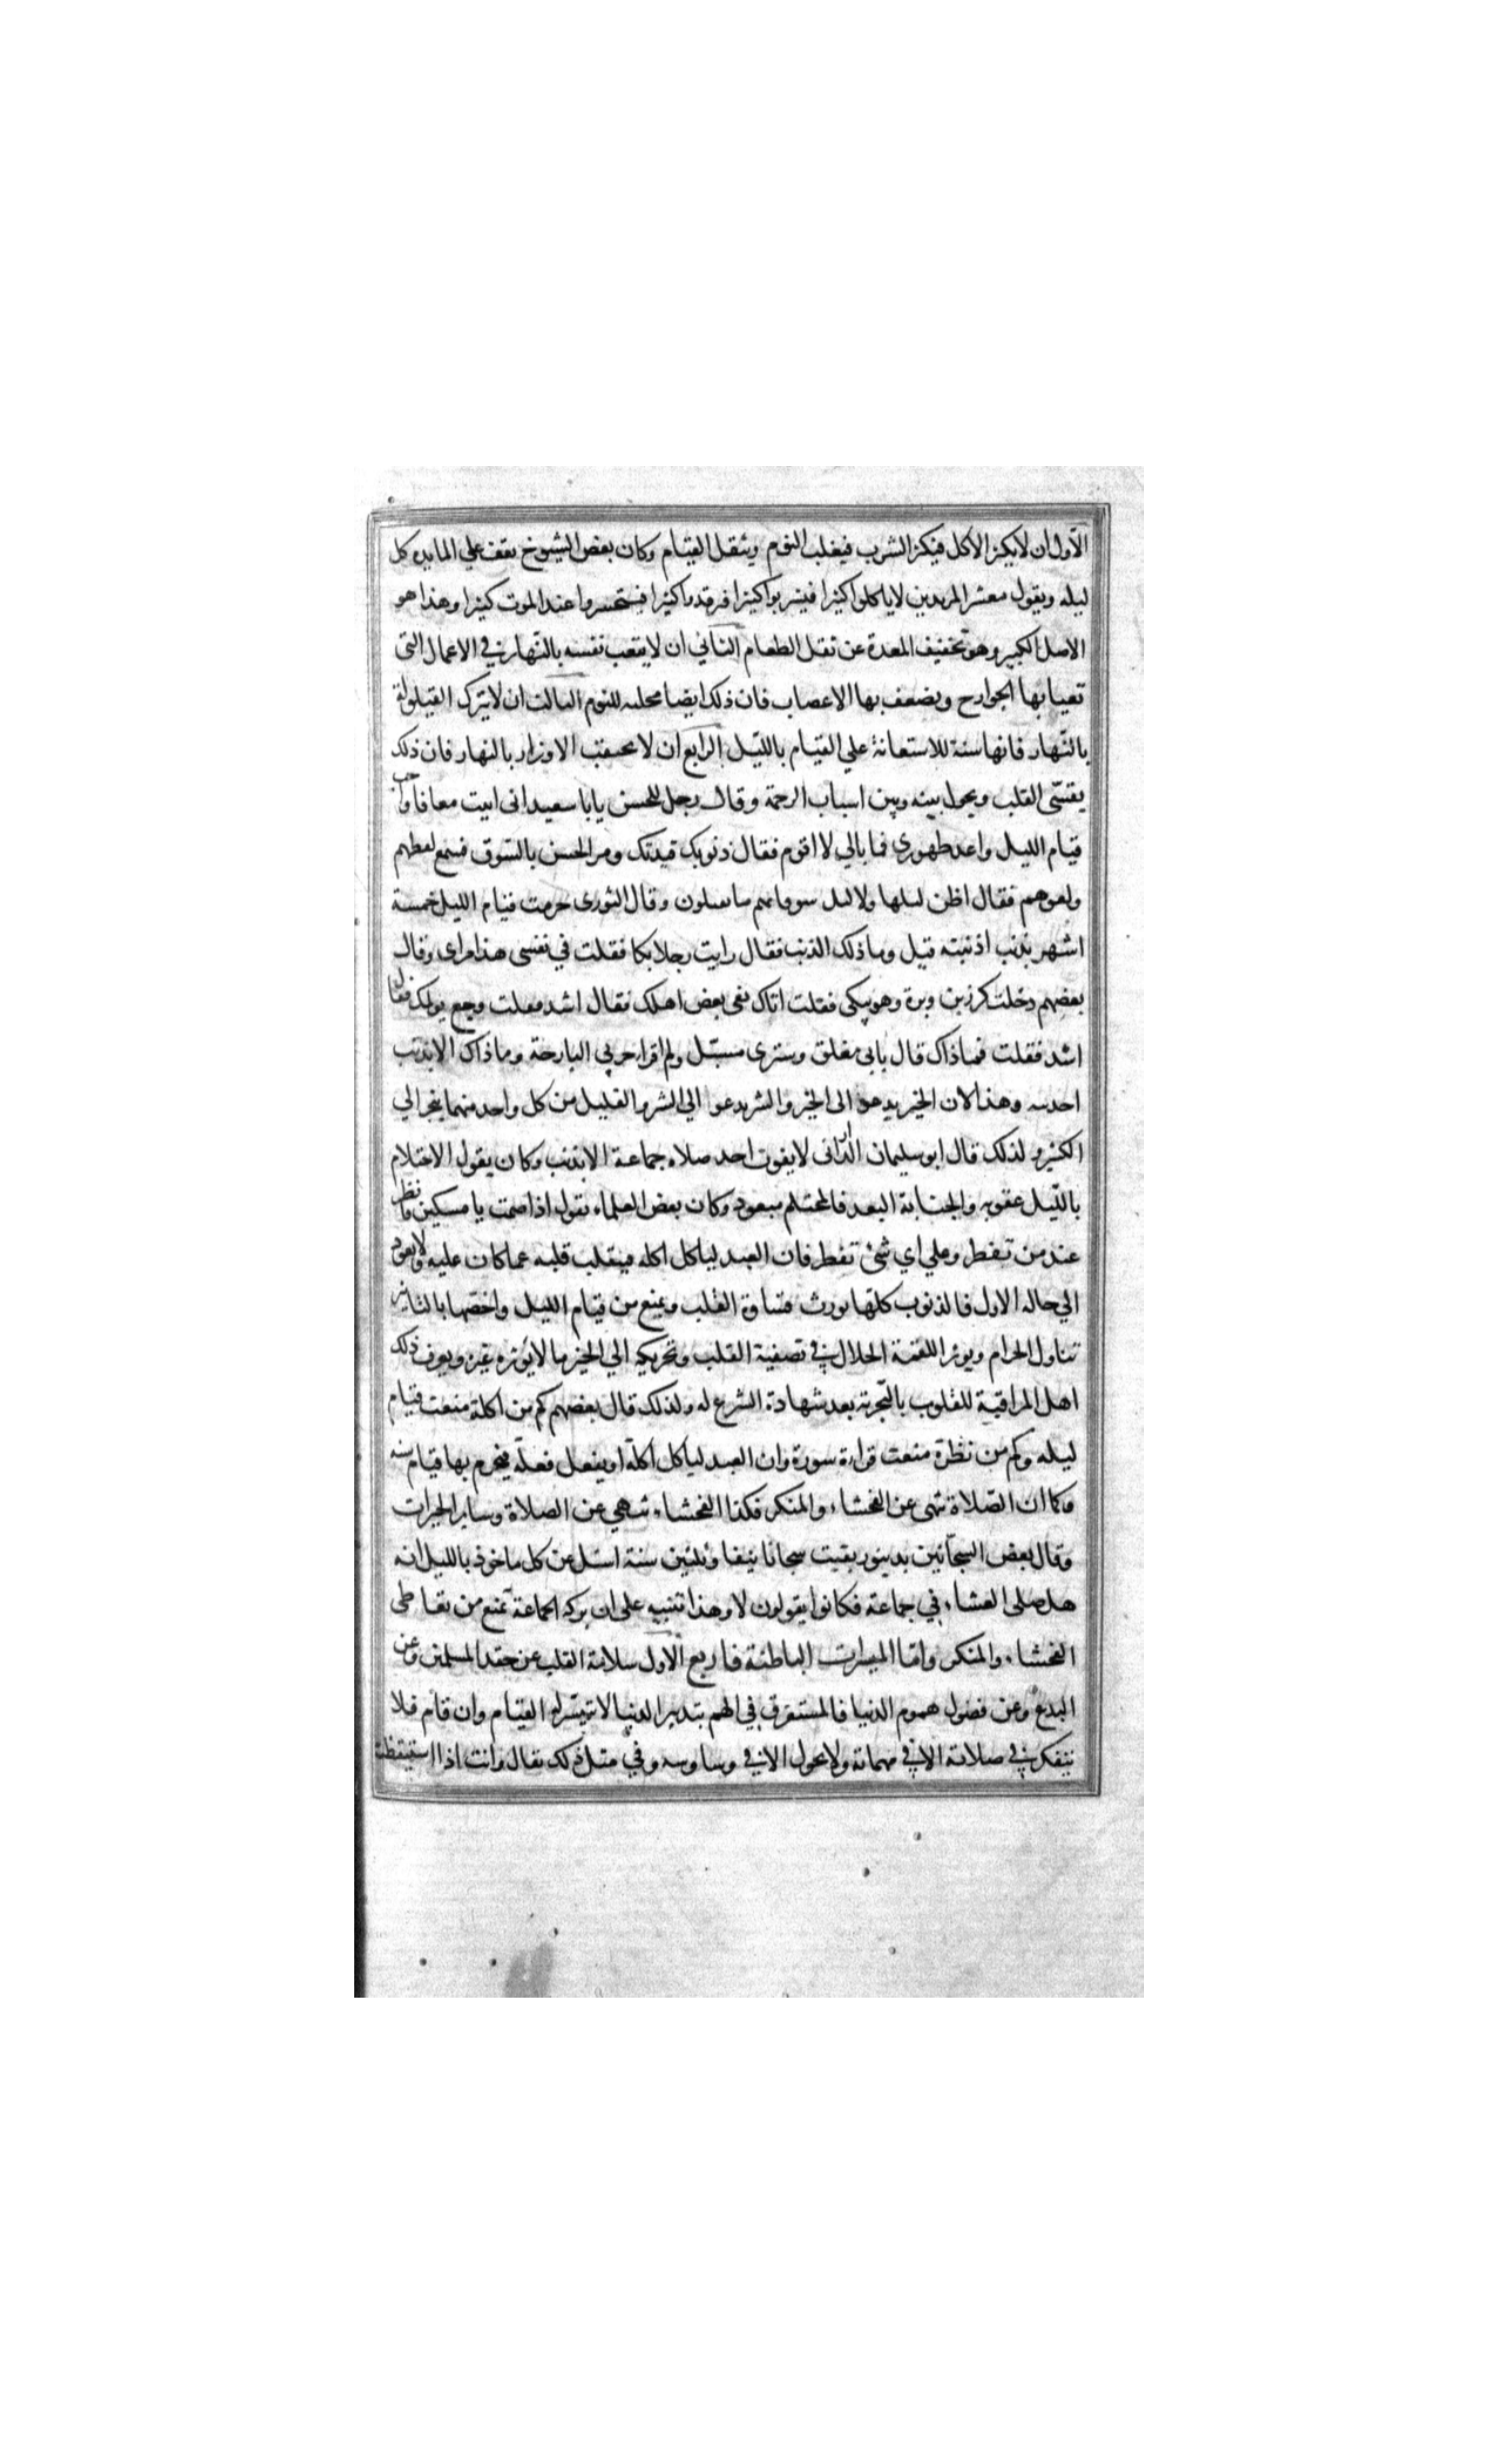 الاول ان لا يكثر الاكل فيكثر الشرب فيغلبه النوم ويثقل القيام وكان بعض الشيوخ يقف علي المايده كل
ليله ويقول معشر المريدين لا ياكلوا كثيرا فيشربوا كثيرا فترقدوا كثيرا فيتحسروا عند الموت كثيرا وهذا هو
الاصل الكبير وهو تخفيف المعدة عن ثقل الطعام الثاني ان لا يتعب نفسه بالنهار في الاعمال التي
تعيا بها الجوارح ويضعف بها الاعصاب فان ذلك ايضا مجلبه للنوم الثالث ان لا يترك القيلولة
بالنهار فانها سنة للاستعانة علي القيام بالليل الرابع ان لا يحتقب الاوزار بالنهار فان ذلك
يقسّي القلب ويحول بينه وبين اسباب الرحمة وقال رجل للحسن يا با سعيد اني ابيت معافا واحب
قيام الليل واعد طهوري فما بالي لا اقوم فقال ذنوبك قيدتك ومر الحسن بالسوق فسمع لغطهم
ولغوهم فقال اظن ليلها ولا ليل سو فانهم ما يقيلون وقال الثوري حرمت قيام الليل خمسة
اشهر بذنب اذنبته قيل وما ذلك الذنب فقال رايت رجلا بكا فقلت في نفسي هذا مراى وقال
بعضهم دخلت كرز بن وبرة وهو يبكي فقلت اتاك نعى بعض اهلك فقال اشد فقلت وجع يولمك فقال
اشد فقلت فما ذاك قال بابي مغلق وستري مسبل ولم اقرا حزبي البارحة وما ذاك الا بذنب
احدثته وهذا لان الخير يدعو الى الخير والشر يدعو الي الشر والقليل من كل واحد منهما ينجر الي
الكثير ولذلك قال ابو سليمان الداراني لا يفوت احد صلاه جماعة الا بذنب وكان يقول الاحتلام
بالليل عقوبه والجنابة البعد فالمحتلم مبعود وكان بعض العلماء يقول اذا صمت يا مسكين فانظر
عند من تفطر وعلي اي شئ تفطر فان العبد لياكل اكله فينقلب قلبه عما كان عليه ولا يعود
الي حاله الاول فالذنوب كلها يورث قساوة القلب ويمنع من قيام الليل واخصها بالتاثير
تناول الحرام ويوثر اللقمة الحلال في تصفية القلب وتحريكه الي الخير ما لا يؤثره غيره ويعرف ذلك
اهل المراقبة للقلوب بالتجربة بعد شهادة الشرع له ولذلك قال بعضهم كم من اكلة منعت قيام
ليله وكم من نظرة منعت قراءة سورة وان العبد لياكل اكلة او يفعل فعلة فيحرم بها قيام سنه
وكما ان الصلاة تنهى عن الفحشاء والمنكر فكذا الفحشاء تنهي عن الصلاة وساير الخيرات
وقال بعض السجانين بدينور بقيت سجانا نيفا وثلثين سنة اسئل عن كل ماخوذ بالليل انه
هل صلى العشاء في جماعة فكانوا يقولون لا وهذا تنبيه على ان بركه الجماعة تمنع من تعاطي
الفحشاء والمنكر واما الميسرات الباطنة فاربع الاول سلامة القلب عن حقد المسلمين وعن
البدع وعن فضول هموم الدنيا فالمستغرق في الهم بتدبير الدنيا لا تيسر له القيام وان قام فلا
يتفكر في صلاتة الا في مهماته ولا يحول الا في وساوسه وفي مثل ذلك يقال وانت اذا استيقظت